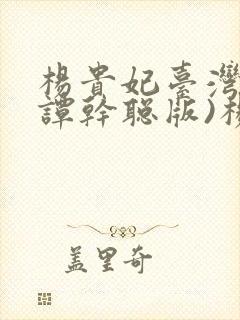 楊貴妃臺灣
譚幹聰版)楊
蓋里奇